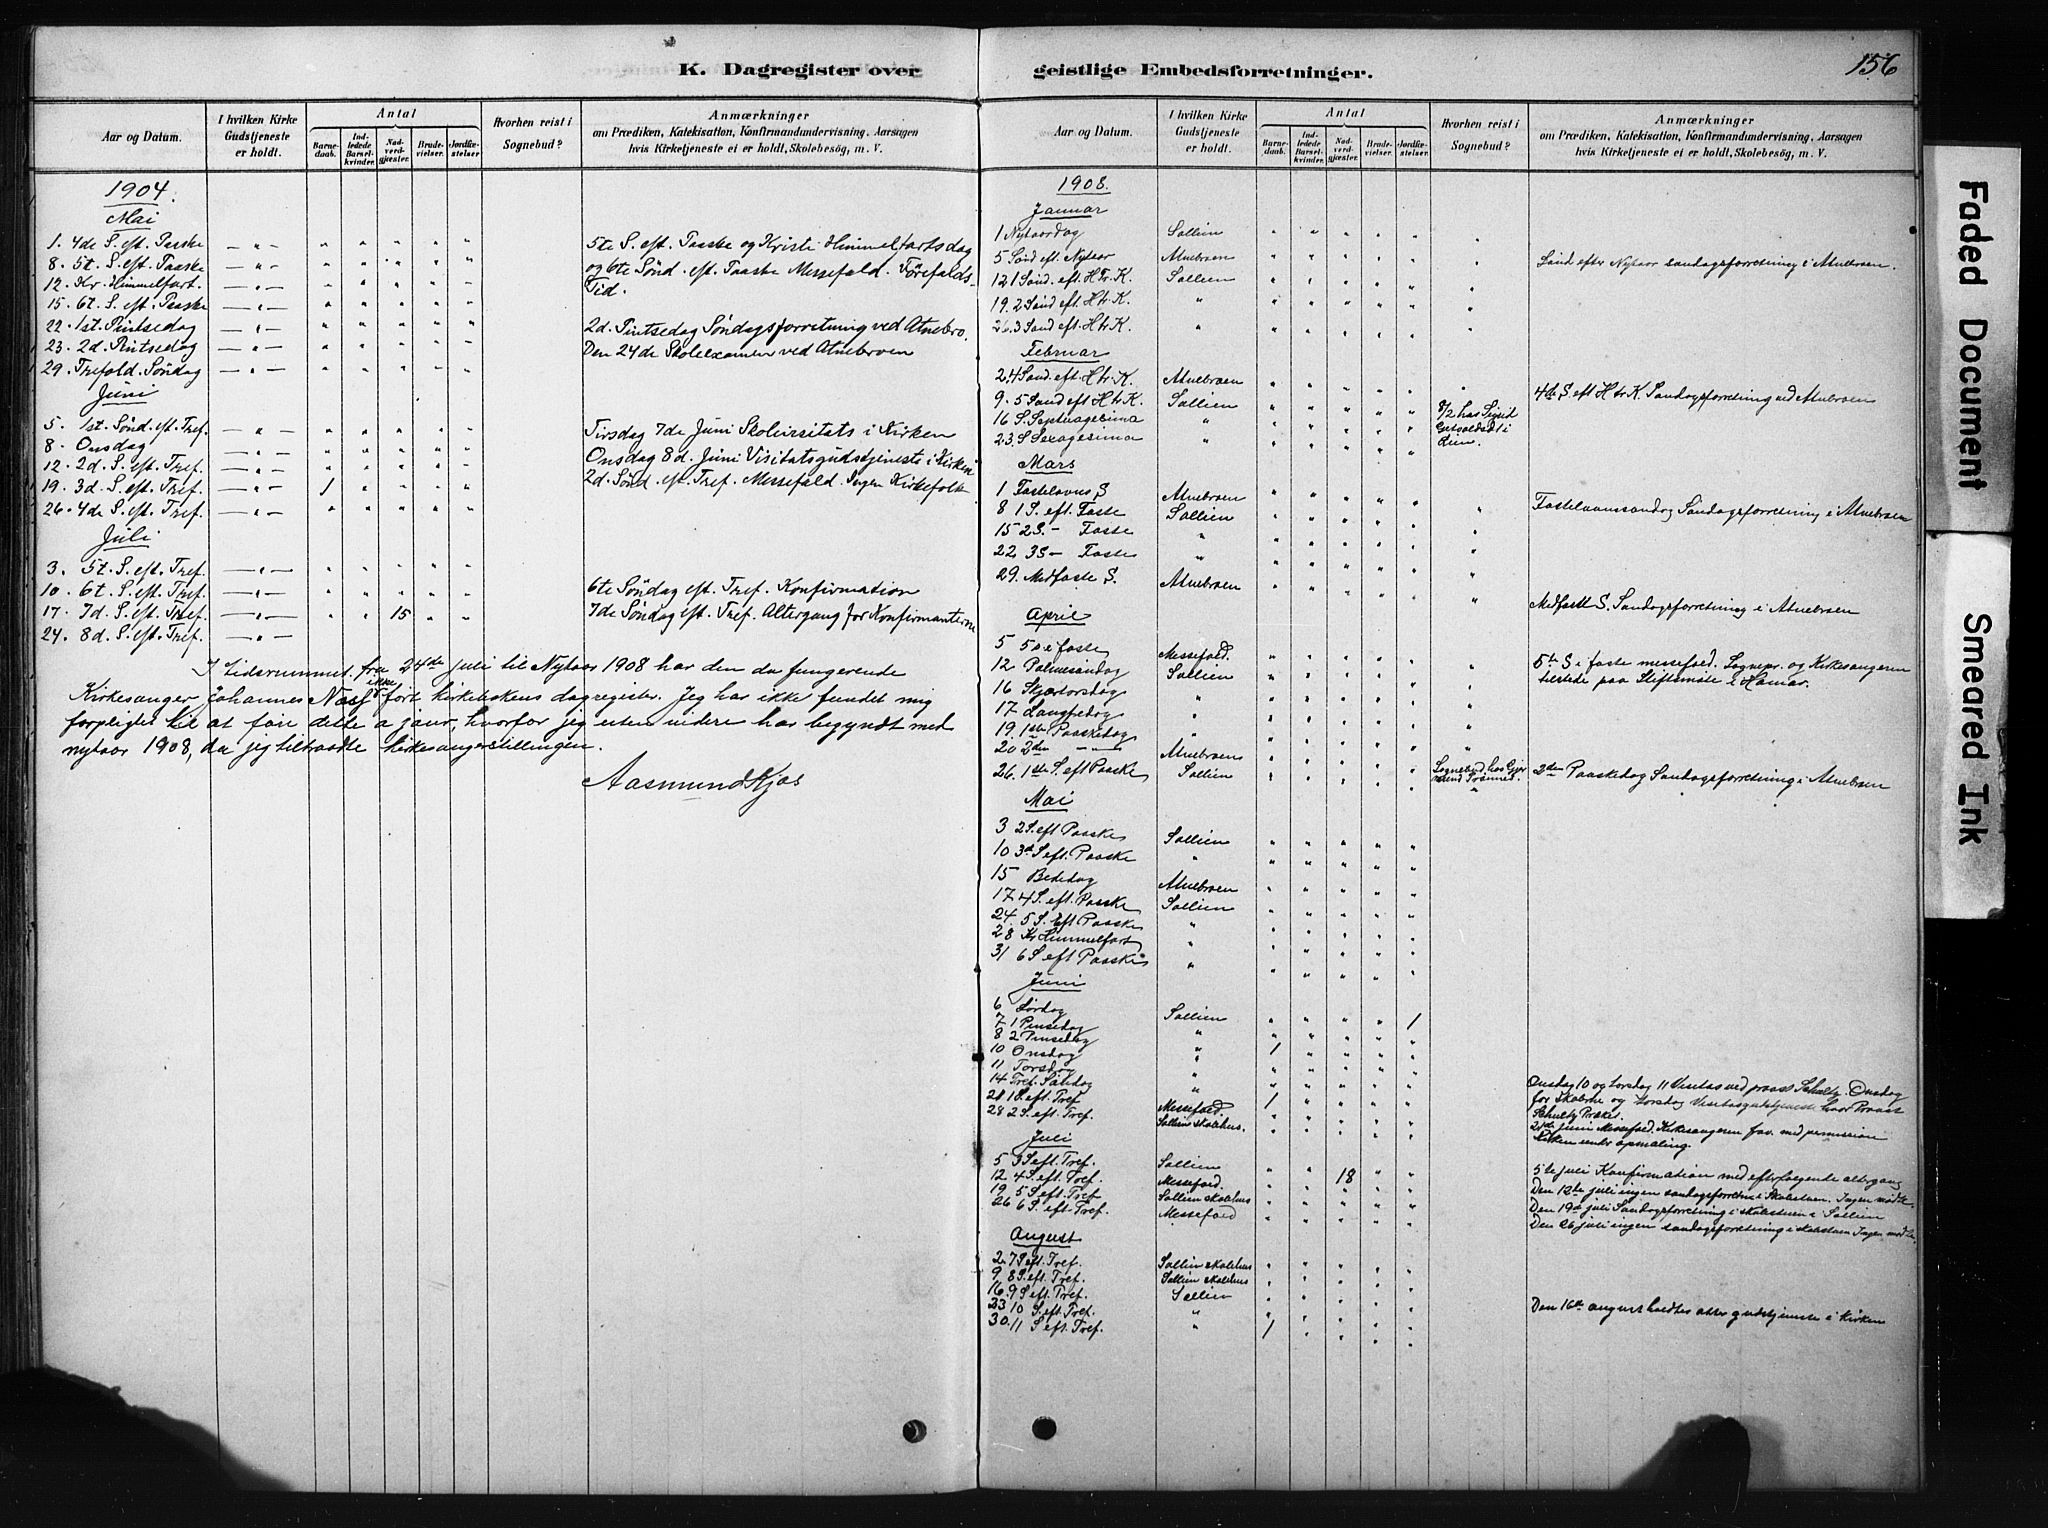 K. Dagregister over geistlige Embedsforretninger.
156
Aar og Datum.
I hvilken Kirke Gudstjeneste er holdt.
Antal
Barnedaab.
Indledede Barselkvinder.
Nadverdgjæster.
Brudevielser.
Jordfæstelser
Hvorhen reist i Sognebud?
Anmærkninger
om Prædiken, Katekisation, Konfirmandundervisning, Aarsagen
hvis Kirketjeneste ei er holdt, Skolebesög, m. V.
1904.
Mai
1. 4de S. eft. Paaske — " — " " " " " 5te S. eft. Paaske og Kristi Himmelfartsdag
8. 5t. S. eft. Paaske — " — " " " " " og 6te Sönd. eft. Paaske Messefald. Förefalds-
12. Kr. Himmelfart. — " — " " " " " Tid.
15. 6t. S. eft. Paaske — " — " " " " "
22. 1st. Pintsedag — " — " " " " " 2d. Pintsedag Söndagsforretning ved Atnebro.
23. 2d. Pintsedag — " — " " " " " Den 24de Skoleexamen ved Atnebroen
29. Trefold. Söndag — " — " " " " "
Juni
5. 1st. Sönd. eft. Tref. — " — " " " " " Tirsdag 7de Juni Skolevisitats i Kirken
8. Onsdag — " — " " " " " Onsdag 8d. Juni Visitatsgudstjeneste i Kirken
12. 2d. S. eft. Tref. — " — " " " " " 2d. Sönd. eft. Tref. Messefald. Ingen Kirkefolk
19. 3d. S. eft. Tref. — " — 1 " " " "
26. 4de S. eft. Tref. — " — " " " " "
Juli
3. 5t. S. eft. Tref. — " — " " " " "
10. 6t. S. eft. Tref. — " — " " " " " 6te Söndag eft. Tref. Konfirmation
17. 7d. S. eft. Tref. — " — " " 15 " " 7de Söndag eft. Tref. Altergang for Konfirmanterne
24. 8d. S. eft. Tref. — " —
I tidsrummet fra 24de juli til Nytaar 1908 har den da fungerende
Kirkesanger Johannes Næsj ikke fört kirkebokens dagregister. Jeg har ikke fundet mig
forpligtet til at före dette a jour, hvorfor jeg uten videre har begyndt med
nytaar 1908, da jeg tiltraadte kirkesangerstillingen.
Aasmund Kjos
Aar og Datum.
I hvilken Kirke Gudstjeneste er holdt.
Antal
Barnedaab.
Indledede Barselkvinder.
Nadverdgjæster.
Brudevielser.
Jordfæstelser
Hvorhen reist i Sognebud?
Anmærkninger
om Prædiken, Katekisation, Konfirmandundervisning, Aarsagen
hvis Kirketjeneste ei er holdt, Skolebesög, m. V.
1908.
Januar
1 Nytaarsdag Sollien
5 Sönd eft. Nytaar Atnebroen Sönd efter Nytaar söndagsforretning i Atnebroen.
12 1 Sönd. eft. H tr. K. Sollien
19. 2 Sönd eft. H tr. K. "
26. 3 Sönd eft. H tr. K. "
Februar
2. 4 Sönd. eft. H tr. K. Atnebroen 4de S. eft H tr K. Söndagsforretning ved Atnebroen
9. 5 Sönd eft H tr K. Sollien 9/2 hos Sigrid
16 S. Septuagesima " i
23. S Sexagesima "
Mars
1 Fastelavns S Atnebroen Fastelavnssöndag Söndagsforretning i Atnebroen
8 1 S. eft. Faste Sollien
15 2 S. - Faste "
22 3 S - Faste "
29. Midfaste S. Atnebroen Midfaste S. Söndagsforretning i Atnebroen
April
5 5 S i faste Messefald. 5te S i faste messefald. Sognepr. og Kirkesangeren
12 Palmesöndag Sollien tilstede paa Stiftsmöte i Hamar.
16 Skjærtorsdag "
17 Langfredag "
19. 1ste Paaskedag "
20 2den — " — Atnebroen Sognebud hos 2den Paaskedag Söndagsforretning i Atnebroen
26. 1ste S. eft Paaske Sollien
Mai
3 2 S. eft Paaske Sollien
10 3d S eft. Paaske "
15 Bededag Atnebroen
17 4 S. eft. Paaske Sollien
24. 5 S. Eft Paaske "
28 Kr Himmelfart "
31 6 S eft Paaske "
Juni
6 Lördag Sollien 1
7 1 Pinsedag "
8 2 Pinsedag " 1
10 Onsdag "
11 Torsdag " Onsdag 10 og torsdag 11 Visitas ved provst Schultz. Onsdag
14 Tref. Söndag " 1 for skolerne og torsdag Visitasgudstjeneste hvor Provst
21 1 S. eft. Tref Messefald. Schultz Præket.
28 2 S. eft. Tref. Sollien skolehus. 21de juni Messefald. Kirkesangeren fav. med permission
Kirken under opmaling.
Juli
5 3 S eft. Tref. Sollien 18 5te juli Konfirmation med efterfölgende altergang
12 4 S. eft. Tref. Messefald. Den 12te juli ingen söndagsforretn. i Skolestuen. Ingen mödte.
19 5 S. eft. Tref Sollien skolehus Den 19de juli Söndagsforretning i skolestuen i Sollien
26 6 S. eft. Tref. Messefald Den 26 juli ingen söndagsforretning i skolstuen Ingen mödte.
August
2. 7 S eft. Tref. Sollien skolehus
9. 8 S. eft. Tref. Sollien skolehus
16. 9 S eft. Tref. Sollien Den 16de august holdtes atter gudstjeneste i kirken
23 10 S. eft. Tref. "
30. 11 S eft. Tref. " 1
Faded Document
Smeared Ink